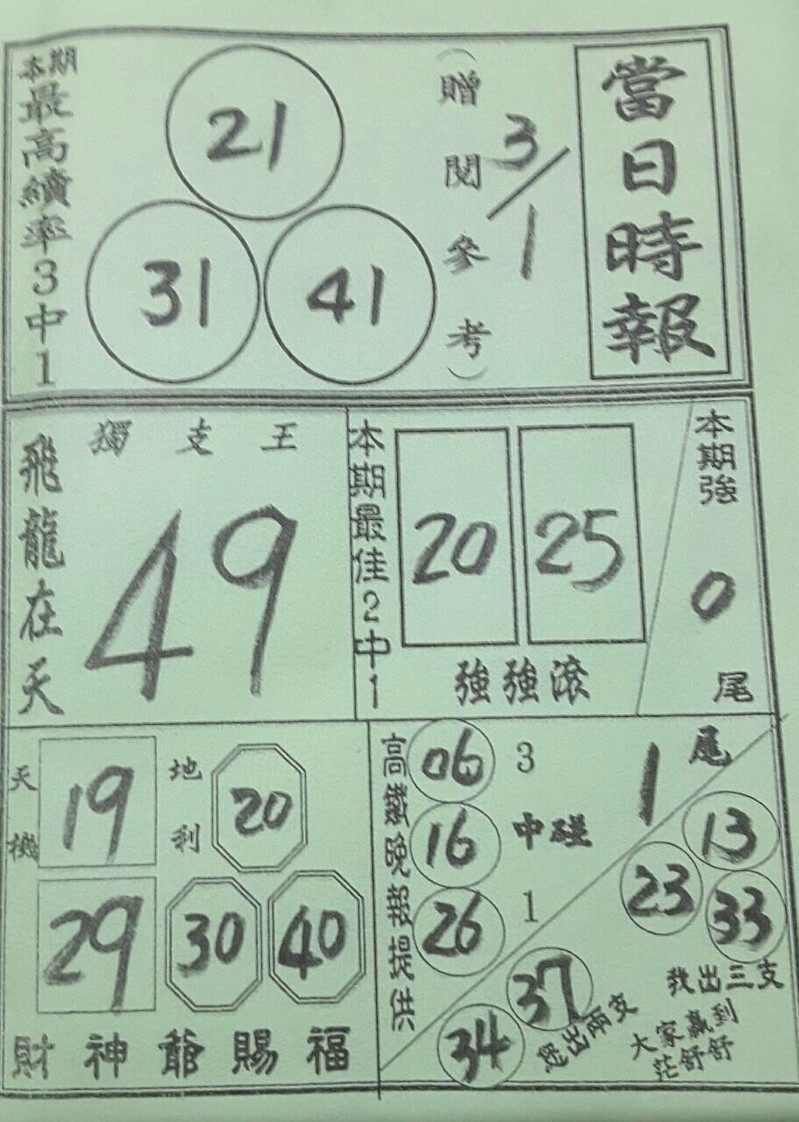 當日時報
(贈閱參考)
3/1
本期最高續率3中1
21
31 41
飛龍在天
獨支王
49
本期最佳2中1
20 25
強強滾
本期強
0
尾
天機
19
29
地利
20
30 40
財神爺賜福
高鐵晚報提供
06
16
26
3
中碰
1
1尾
13
23
33
我出三支
37
34
您出兩支
大家贏到
茫舒舒